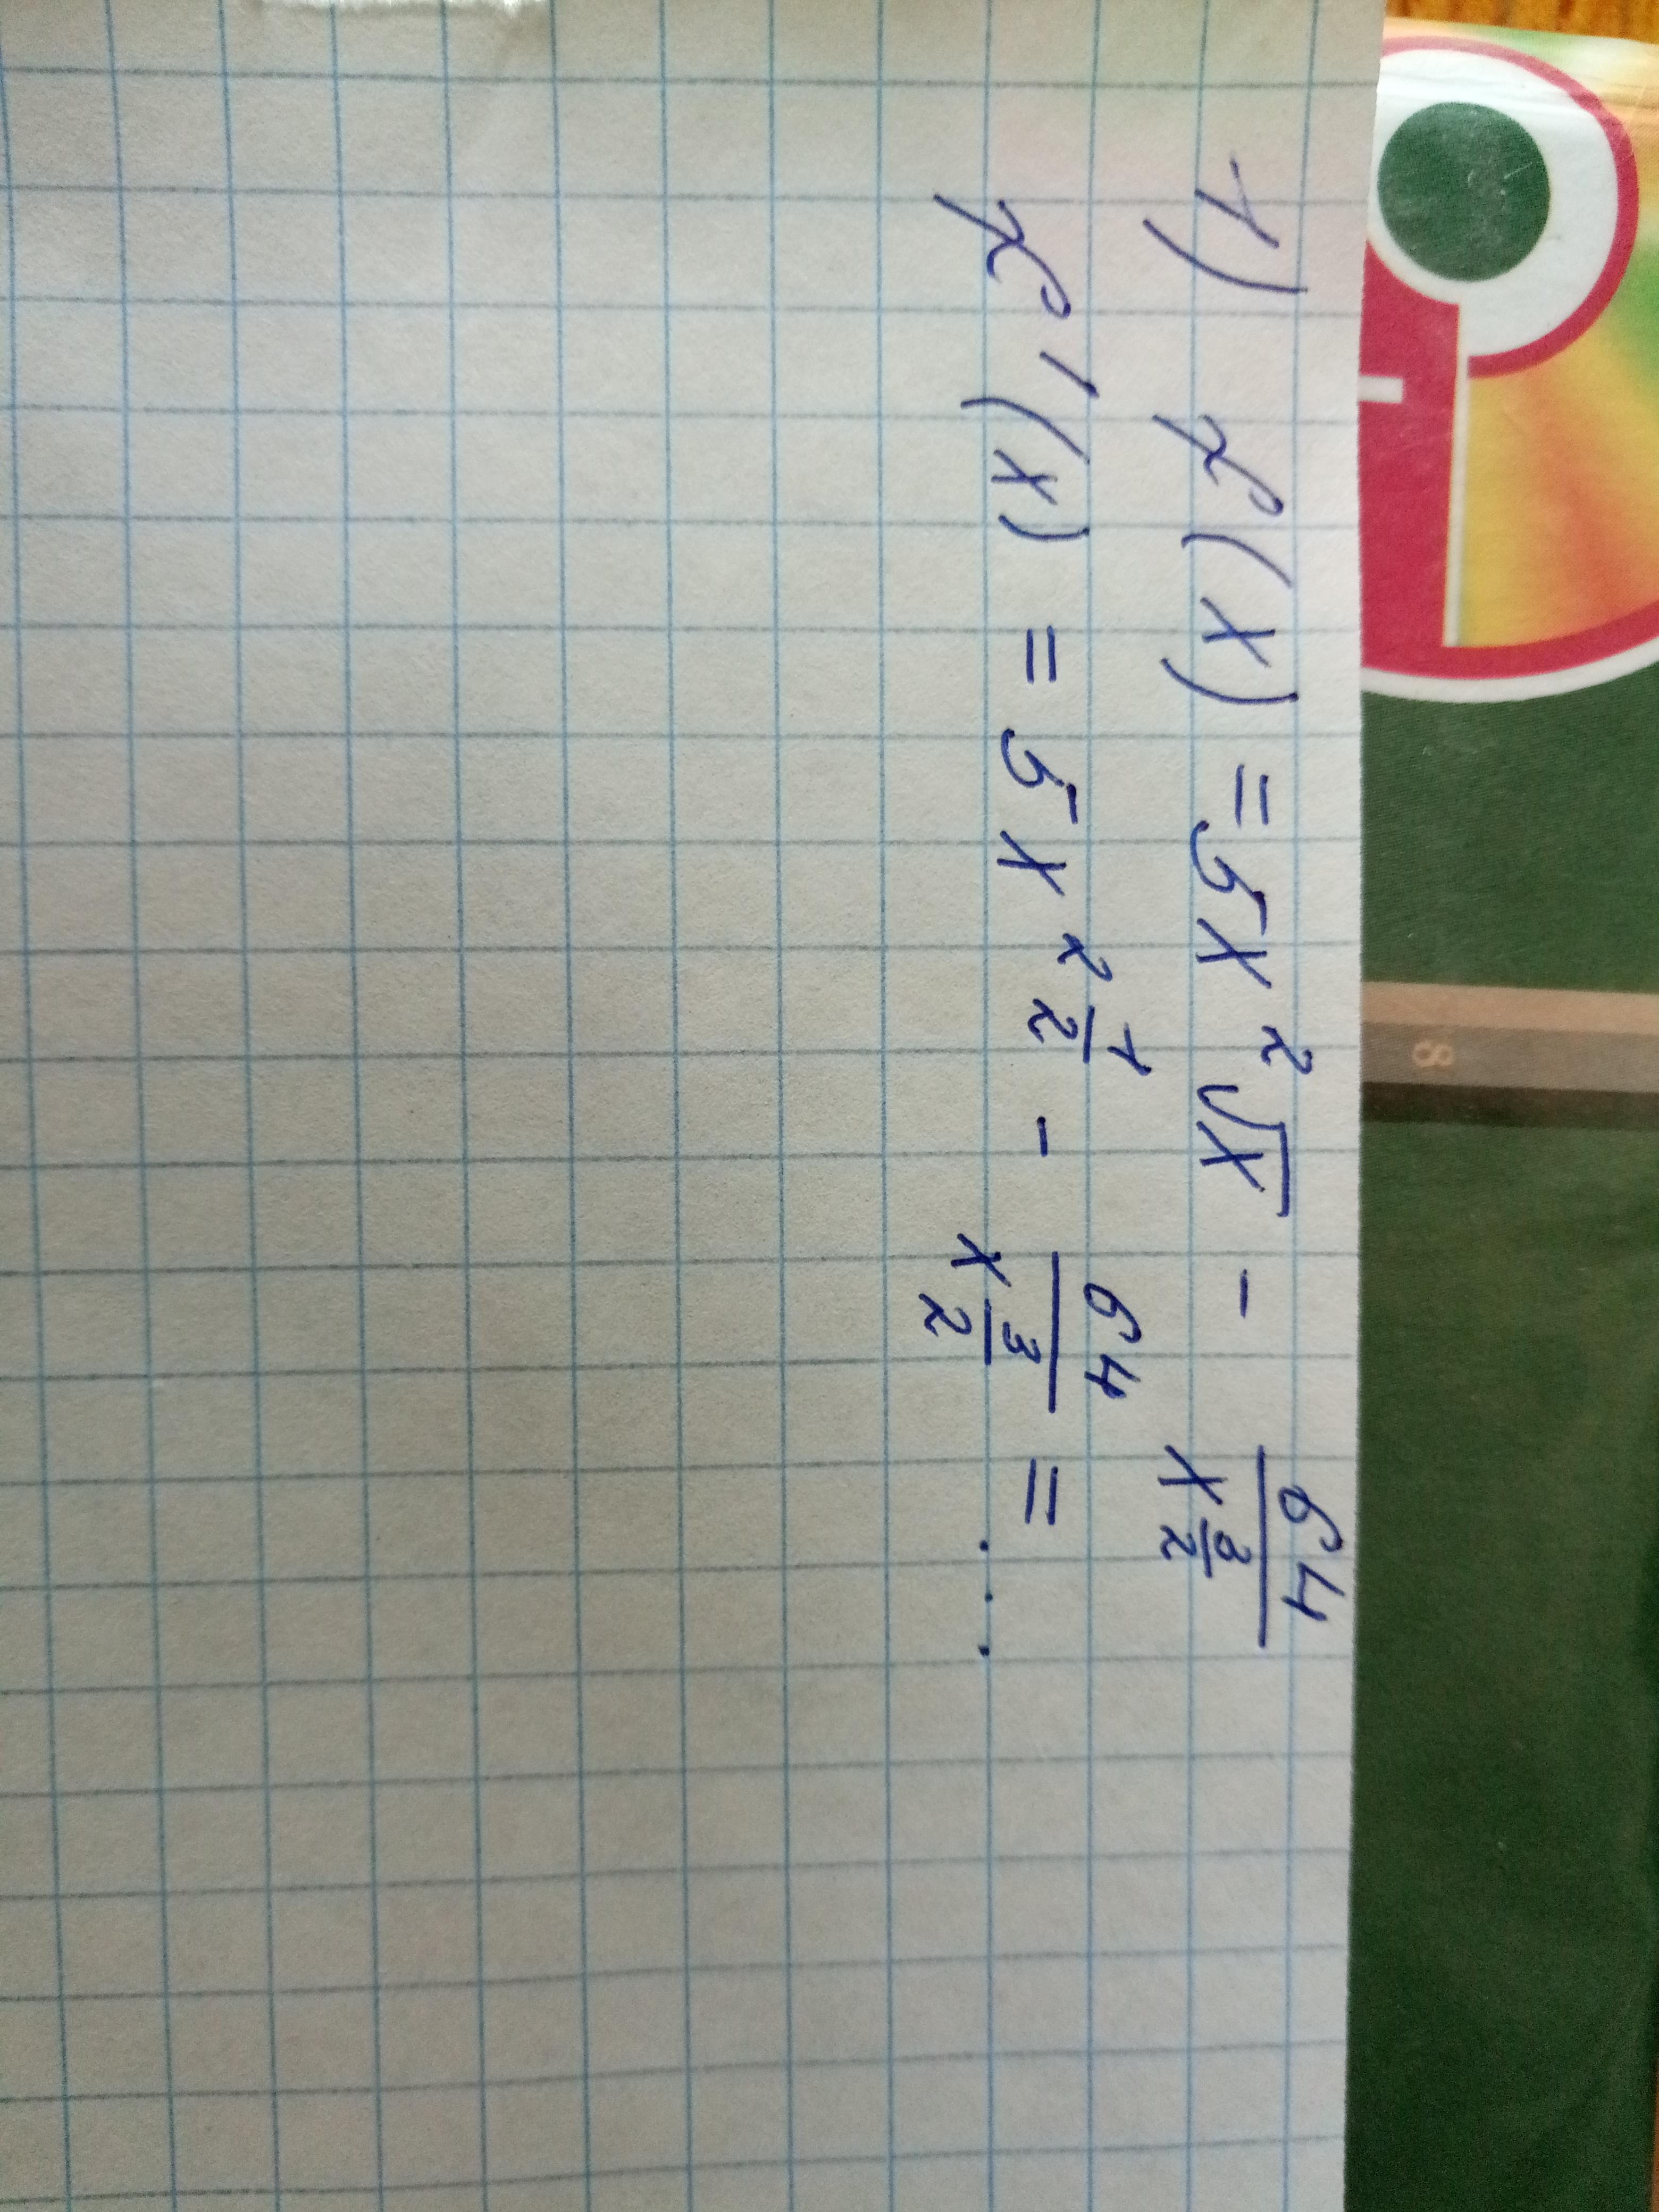 1) f(x) = 5x²√x - 64/x^(3/2)
f'(x) = 5x^(2 1/2) - 64/x^(3/2) = ...
8